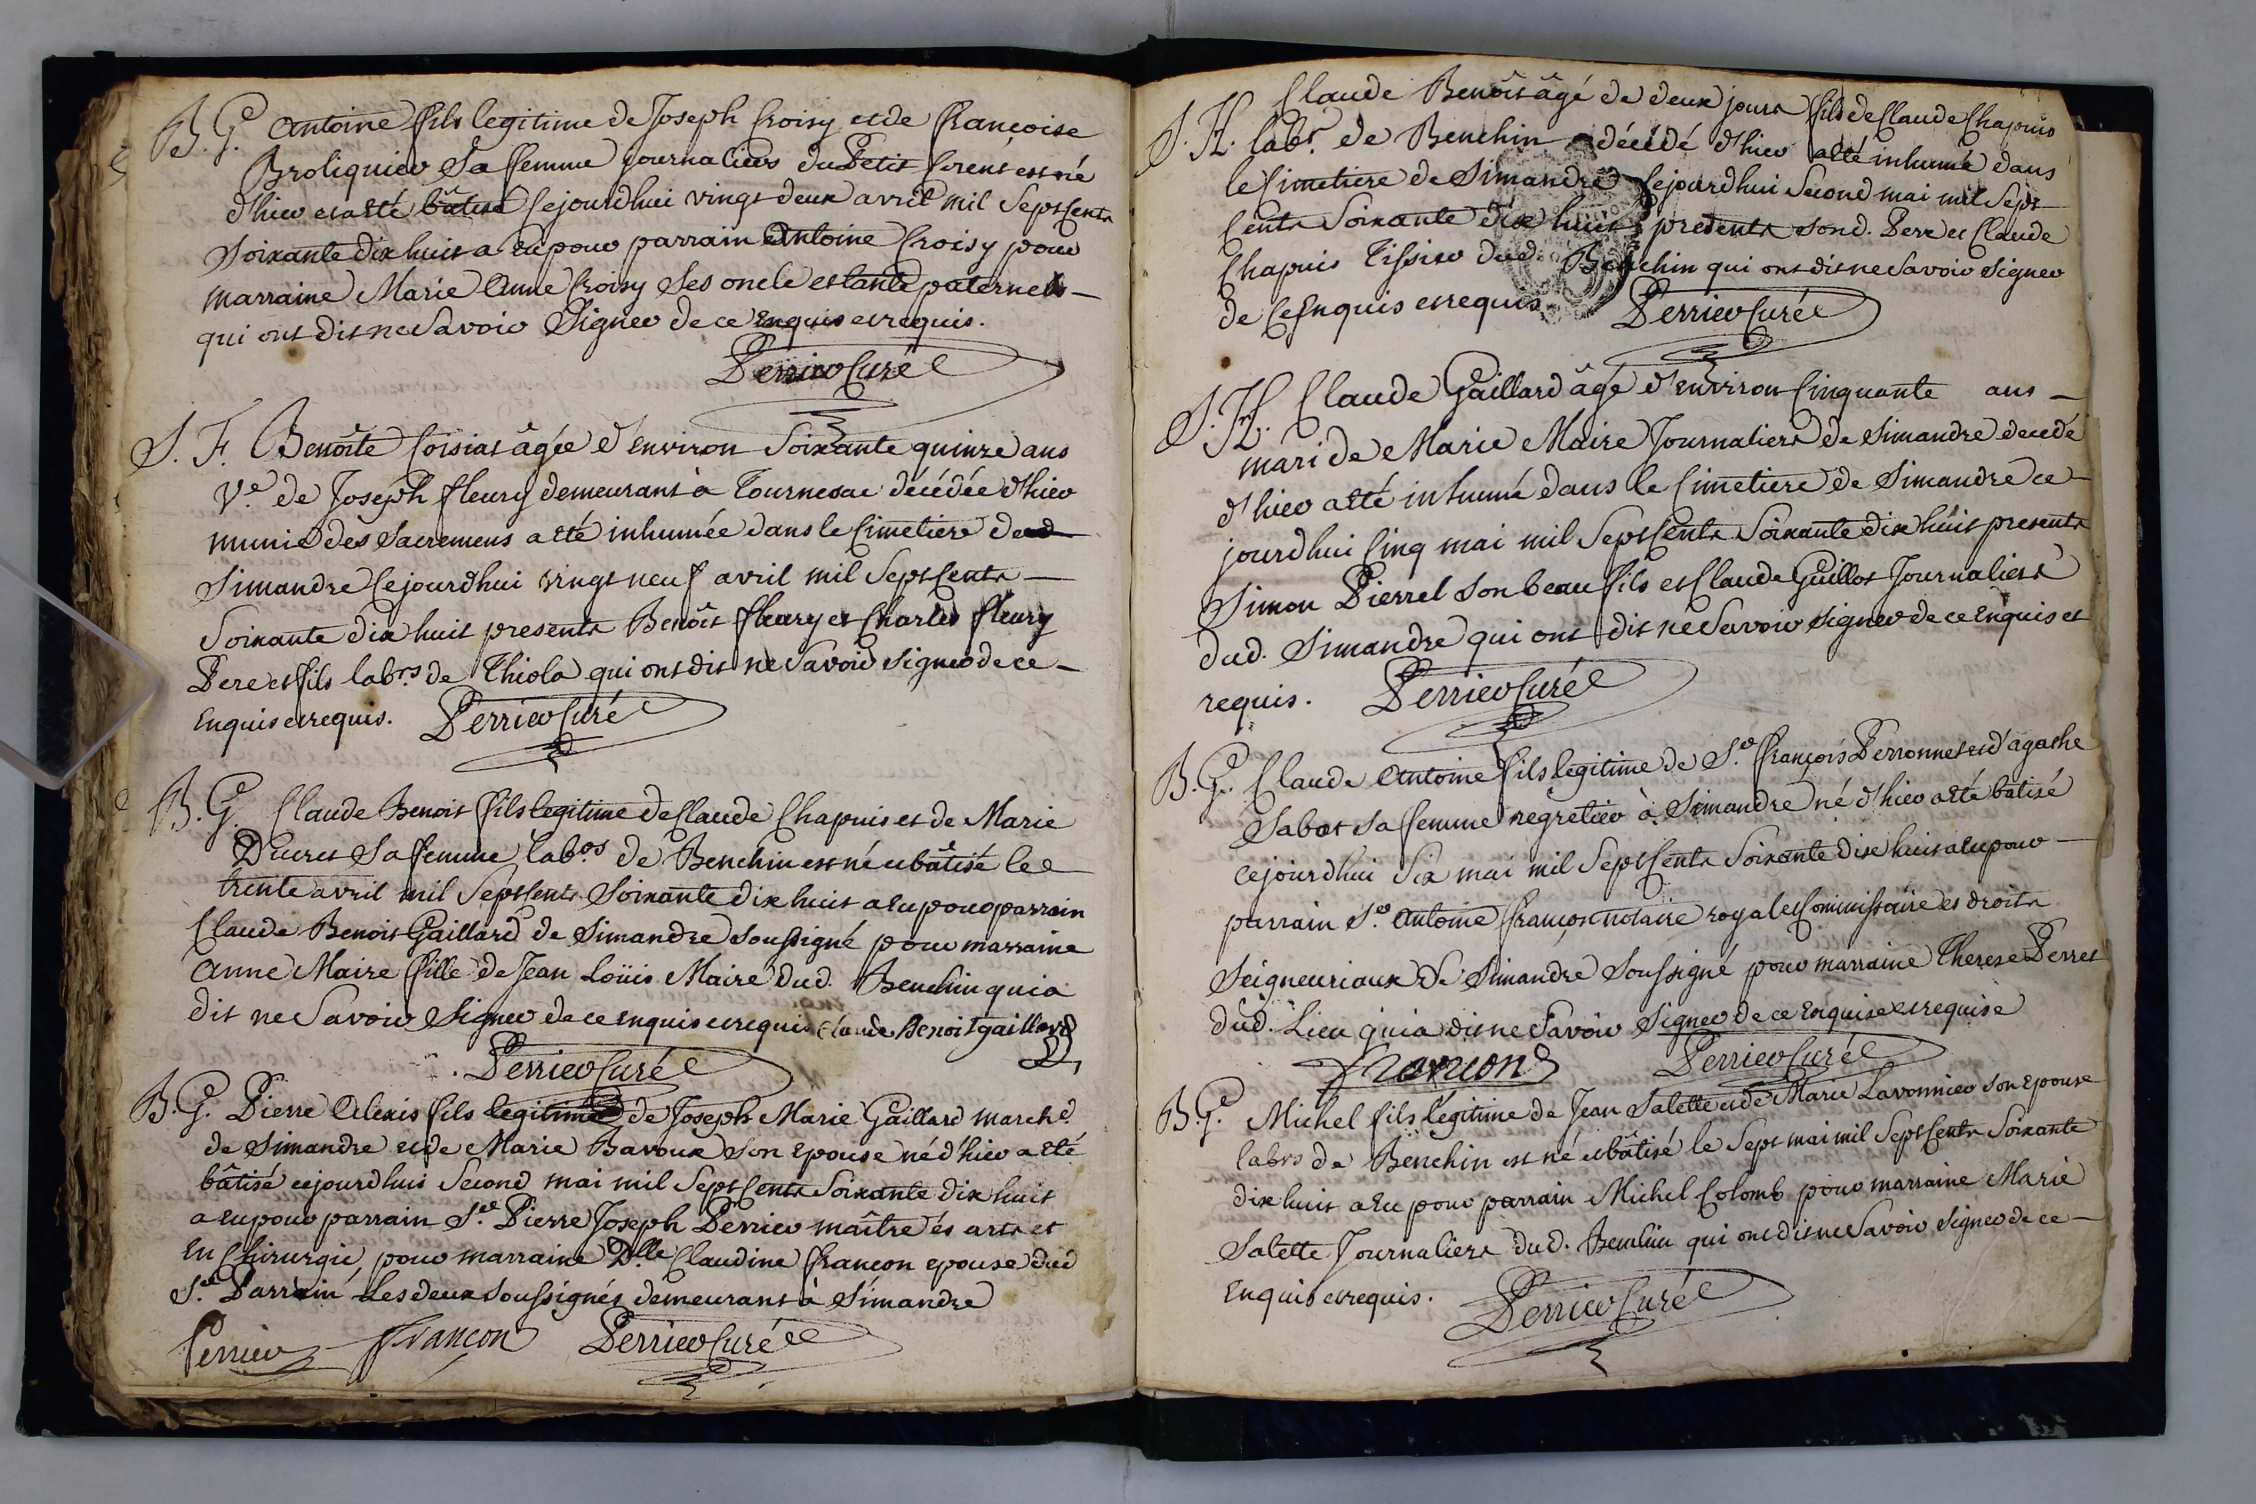 B. G. Antoine fils legitime de Joseph Croisy et de françoise
Broliquier Sa femme journaliers du Petit Corent est né
d'hier et a eté bâtisé Cejourdhui vingt deux avril mil SeptCents
Soixante dix huit a eu pour parrain Antoine Croisy pour
marraine Marie Anne Croisy Ses oncle et tante paternels
qui ont dit ne Savoir Signer de ce Enquis et requis.
Perrier Curé
S. F. Benoîte Coisiat âgée d'environ Soixante quinze ans
Ve. de Joseph fleury demeurant à Tournesac décédée d'hier
munie des Sacremens a eté inhumée dans le Cimetiere
Simandre Cejourdhui vingt neuf avril mil SeptCents
Soixante dix huit presents Benoît fleury et Charles fleury
Pere et fils labrs. de Thiola qui ont dit ne Savoir Signer de ce
Enquis et requis. Perrier Curé
B. G. Claude Benoit fils legitime de Claude Chapuis et de Marie
Ducret Sa femme labrs de Benchin est né et bâtisé le
trente avril mil SeptCents Soixante dix huit a eu pour parrain
Claude Benoit Gaillard de Simandre Soussigné pour marraine
Anne Maire fille de Jean Loüis Maire dud. Benchin qui a
dit ne Savoir Signer de ce enquise et requise Claude Benoist gaillard
Perrier Curé
B. G. Pierre Alexis fils legitime de Joseph Marie Gaillard marchd.
de Simandre et de Marie Bavoux Son epouse né d'hier a eté
bâtisé cejourdhui Second mai mil SeptCents Soixante dix huit
a eu pour parrain Sr. Pierre Joseph Perrier maître és arts et
En Chirurgie, pour marraine Dlle Claudine françon epouse dud
Sr. Parrain Les deux Soussignés demeurant à Simandre
Perrier françon Perrier Curé
Claude Benoît âgé de deux jours fils de Claude Chapuis
S. H. labr. de Benchin décédé d'hier a eté inhumé dans
le Cimetiere de Simandre Cejourdhui Second mai mil Sept
Cents Soixante dix huit presents Sond. Pere et Claude
Chapuis Tissier dud. Benchin qui ont dit ne Savoir Signer
de Ce Enquis et requis Perrier Curé
S. H. Claude Gaillard âgé d'environ Cinquante ans
mari de Marie Maire Journaliers de Simandre decedé
d'hier a eté inhumé dans le Cimetiere de Simandre ce
jourdhui Cinq mai mil SeptCents Soixante dix huit presents
Simon Pierrel Son beau fils et Claude Guillot Journaliers
dud. Simandre qui ont dit ne Savoir Signer de ce Enquis et
requis. Perrier Curé
B. G. Claude Antoine fils legitime de Sr. françois Perronnet et d'agathe
Sabot Sa femme regretier à Simandre né d'hier a eté bâtisé
cejourdhui Six mai mil SeptCents Soixante dix huit a eu pour
parrain Sr. Antoine françon notaire royal et Commissaire és droits
Seigneuriaux de Simandre Soussigné pour marraine Therese Perret
dud. Lieu qui a dit ne Savoir Signer de ce enquise et requise
françon Perrier Curé
B. G. Michel fils legitime de Jean Salette et de Marie Lavonnier Son epouse
labrs de Benchin est né et bâtisé le Sept mai mil SeptCents Soixante
dix huit a eu pour parrain Michel Colomb pour marraine Marie
Salette Journaliers dud. Benchin qui ont dit ne Savoir Signer de ce
Enquis et requis. Perrier Curé